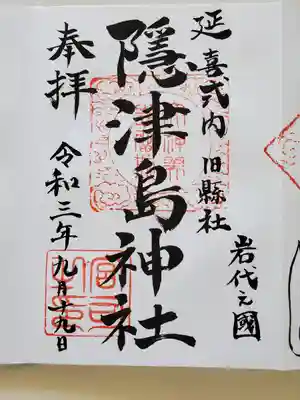 延喜式内 旧縣社
岩代之國
隠津島神社
奉拝
令和三年九月十九日